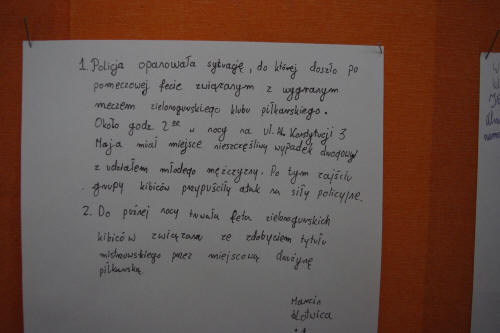 1. Policja opanowała sytuację, do której doszło po
pomeczowej fecie związanym z wygranym
meczem zielonogurskiego klubu piłkarskiego.
Około godz. 2⁰⁰ w nocy na ul. Konstytucji 3
Maja miał miejsce nieszczęśliwy wypadek drogowy
z udziałem młodego mężczyzny. Po tym zajściu
grupy kibiców przypuściły atak na siły policyjne.
2. Do późnej nocy trwała feta zielonogurskich
kibiców związana ze zdobyciem tytułu
mistrzowskiego przez miejscową drużynę
piłkarską
Marcin